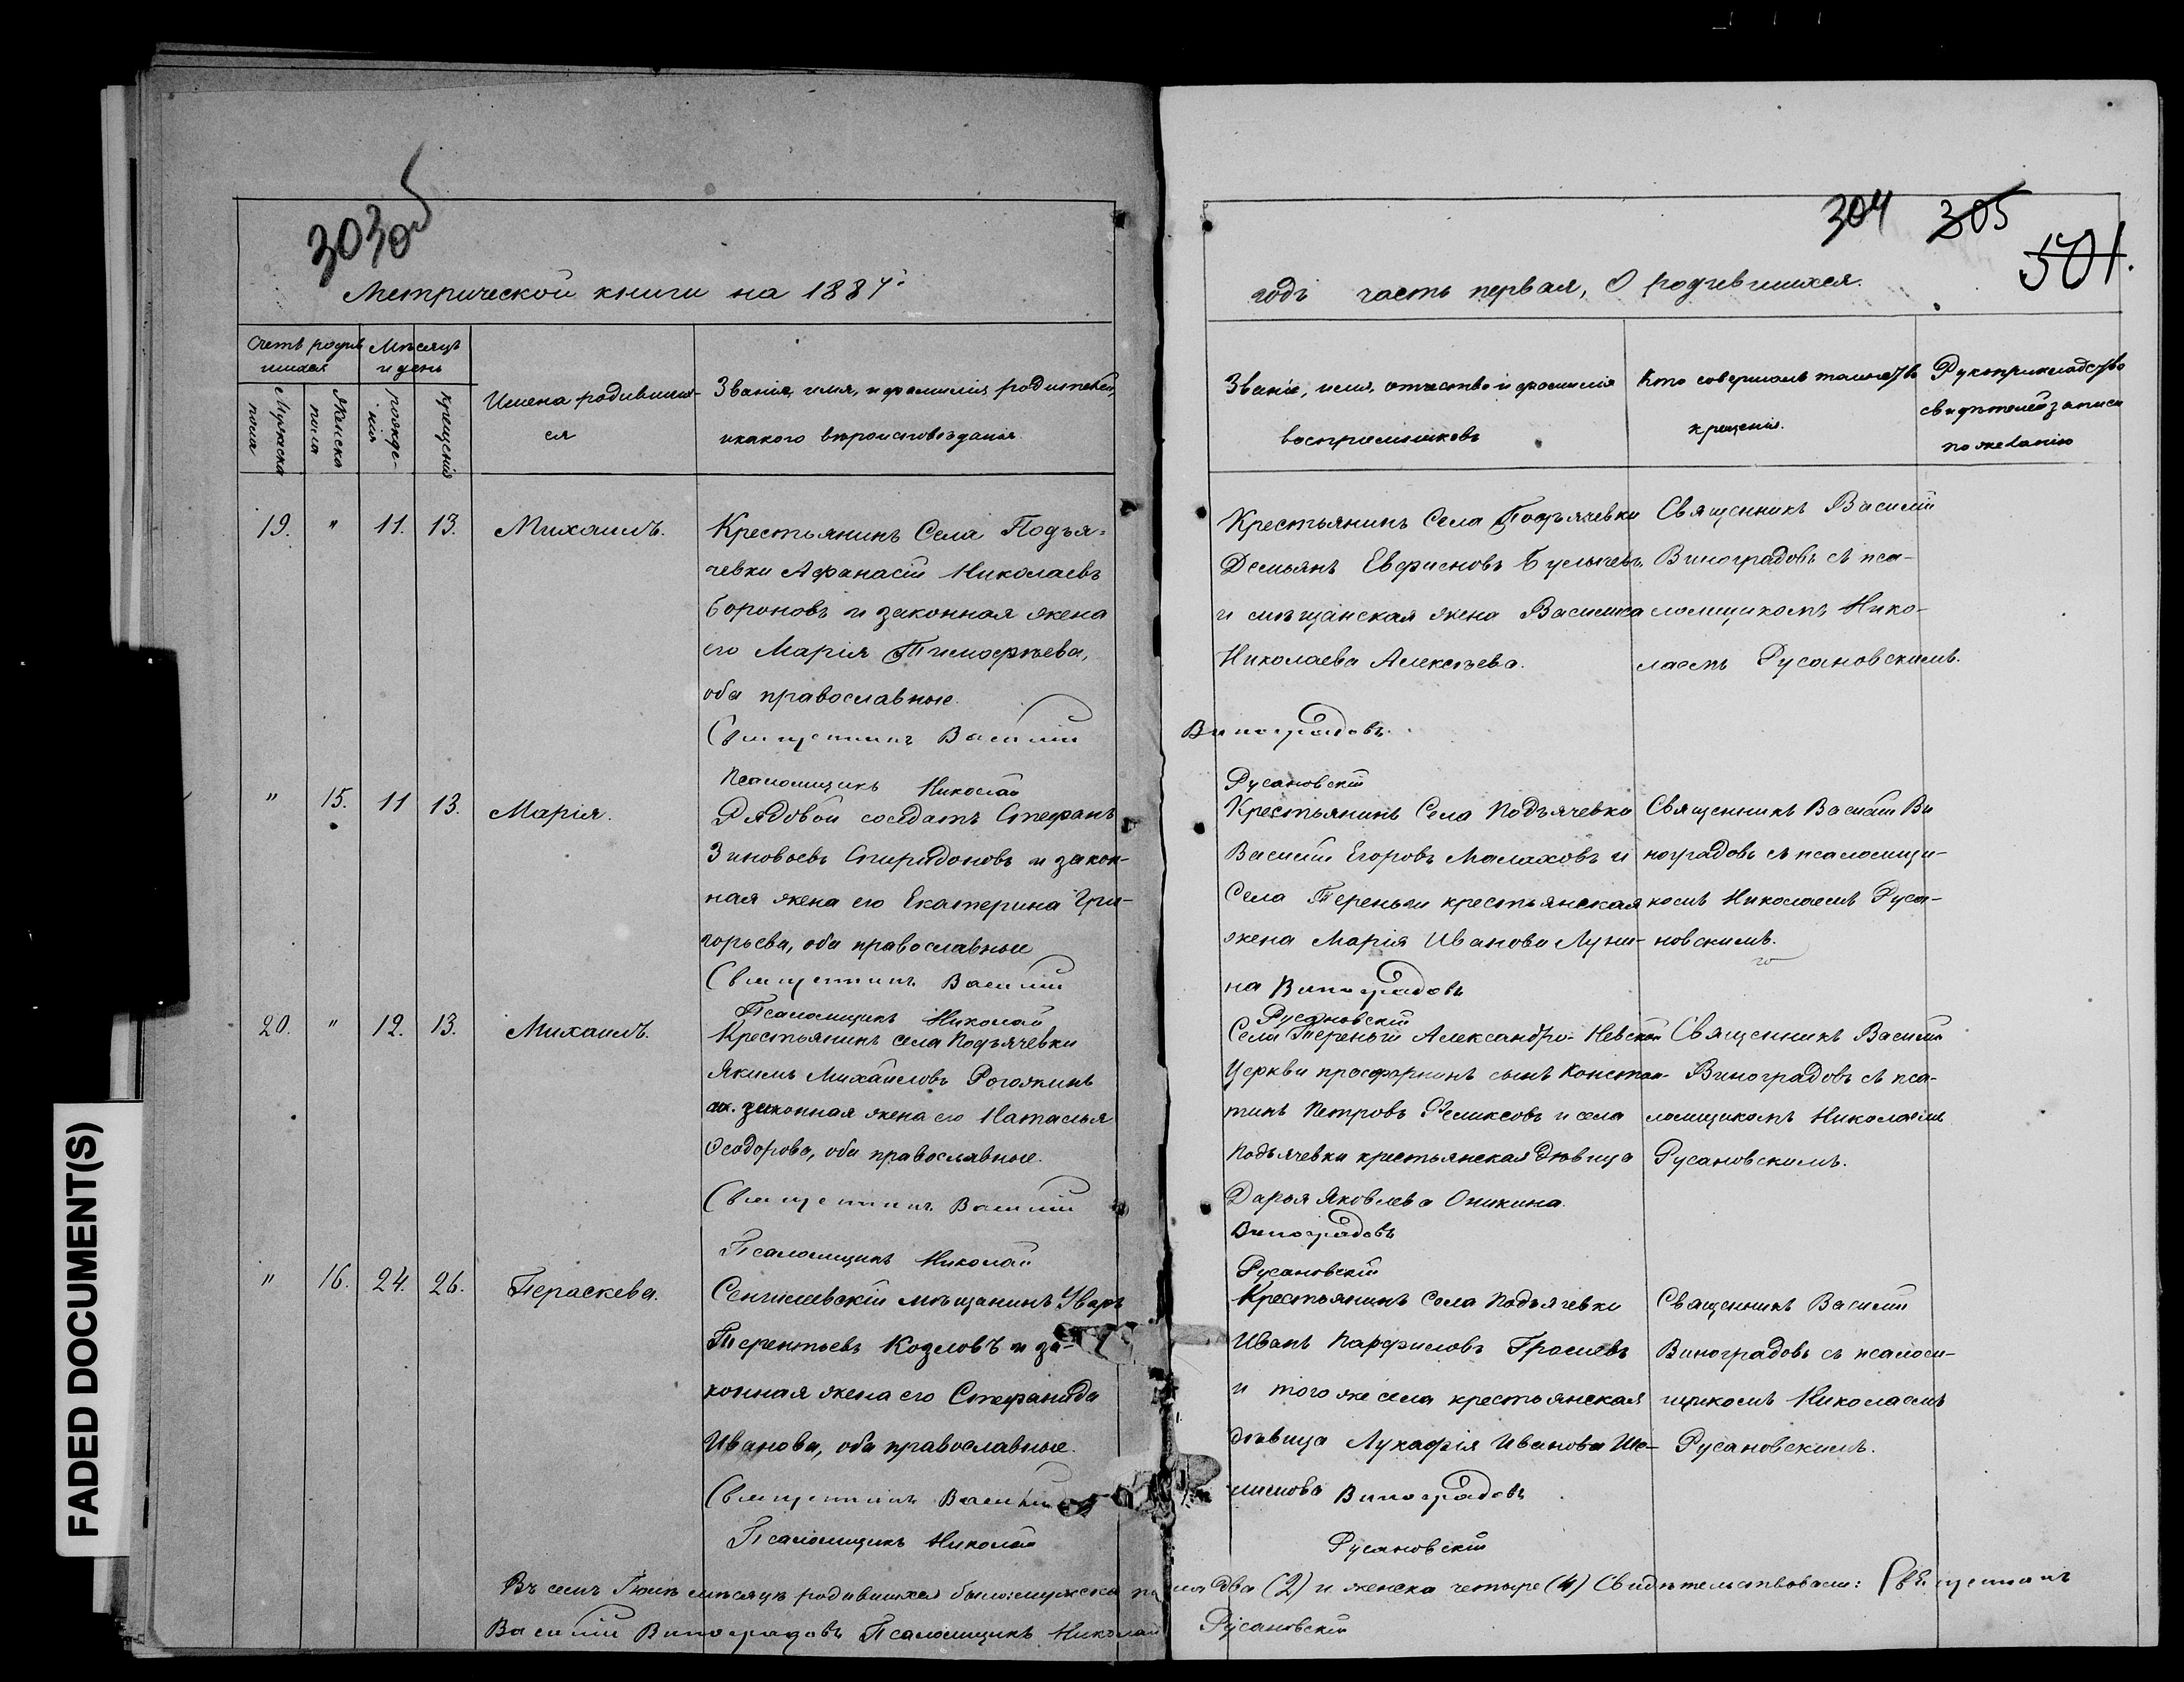 303об
Метрической книги на 1887й
Счетъ родив
шихся
Мѣсяцъ
и день
Мужска
пола
Женска
пола
рожде-
нія
крещенія
Имена родивших-
ся
Званія, имя, и фамилія родителей,
и какого вѣроисповѣданія.
19. " 11. 13. Михаилъ.
Крестьянинъ Села Подъя-
чевки Афанасій Николаевъ
Бороновъ и законная жена
его Марія Тимофѣева,
оба православные.
Священникъ Василій
Псаломщикъ Николай
" 15. 11 13. Марія.
Рядовой солдатъ Стефанъ
Зиновьевъ Спиридоновъ и закон-
ная жена его Екатерина Гри-
горьева, оба православные
Священникъ Василій
Псаломщикъ Николай
20. " 12. 13. Михаилъ.
Крестьянинъ села Подъячевки
Якимъ Михайловъ Рогожинъ
и законная жена его Наталья
Ѳеодорова, оба православные.
Священникъ Василій
Псаломщикъ Николай
" 16. 24. 26. Параскева.
Сенгилеевскій мѣщанинъ Уваръ
Терентьевъ Козловъ и за-
конная жена его Стефанида
Иванова, оба православные.
Священникъ Василій
Псаломщикъ Николай
304 305
501.
годъ часть первая, О родившихся.
Званіе, имя, отчество и фамилія
воспріемниковъ
Кто совершалъ таинство
крещенія.
Рукоприкладство
свидѣтелей записи
по желанію
Крестьянинъ Села Подъячевки
Демьянъ Евфимовъ Булычевъ
и мѣщанская жена Василиса
Николаева Алексѣева.
Виноградовъ.
Русановскій
Священникъ Василій
Виноградовъ съ пса-
ломщикомъ Нико-
лаемъ Русановскимъ.
Крестьянинъ Села Подъячевки
Василій Егоровъ Малаховъ и
Села Тереньги крестьянская
жена Марія Иванова Луни-
на Виноградовъ
Русановскій
Священникъ Василій Ви
ноградовъ съ псаломщи-
комъ Николаемъ Руса-
новскимъ.
Села Тереньги Александро-Невской
Церкви просфорнинъ сынъ Констан-
тинъ Петровъ Феликсовъ и села
Подъячевки крестьянская дѣвица
Дарья Яковлева Оникина.
Виноградовъ
Русановскій
Священникъ Василій
Виноградовъ съ пса-
ломщикомъ Николаемъ
Русановскимъ.
Крестьянинъ Села Подъячевки
Иванъ Парфиловъ
и того же села крестьянская
дѣвица Иванова
Виноградовъ
Русановскій
Священникъ Василій
Виноградовъ съ псалом-
щикомъ Николаемъ
Русановскимъ.
Въ семъ Іюлѣ мѣсяцѣ родившихся было: мужска пола два (2) и женска четыре (4) Свидѣтельствовали: Священникъ
Василій Виноградовъ Псаломщикъ Николай Русановскій
FADED DOCUMENT(S)